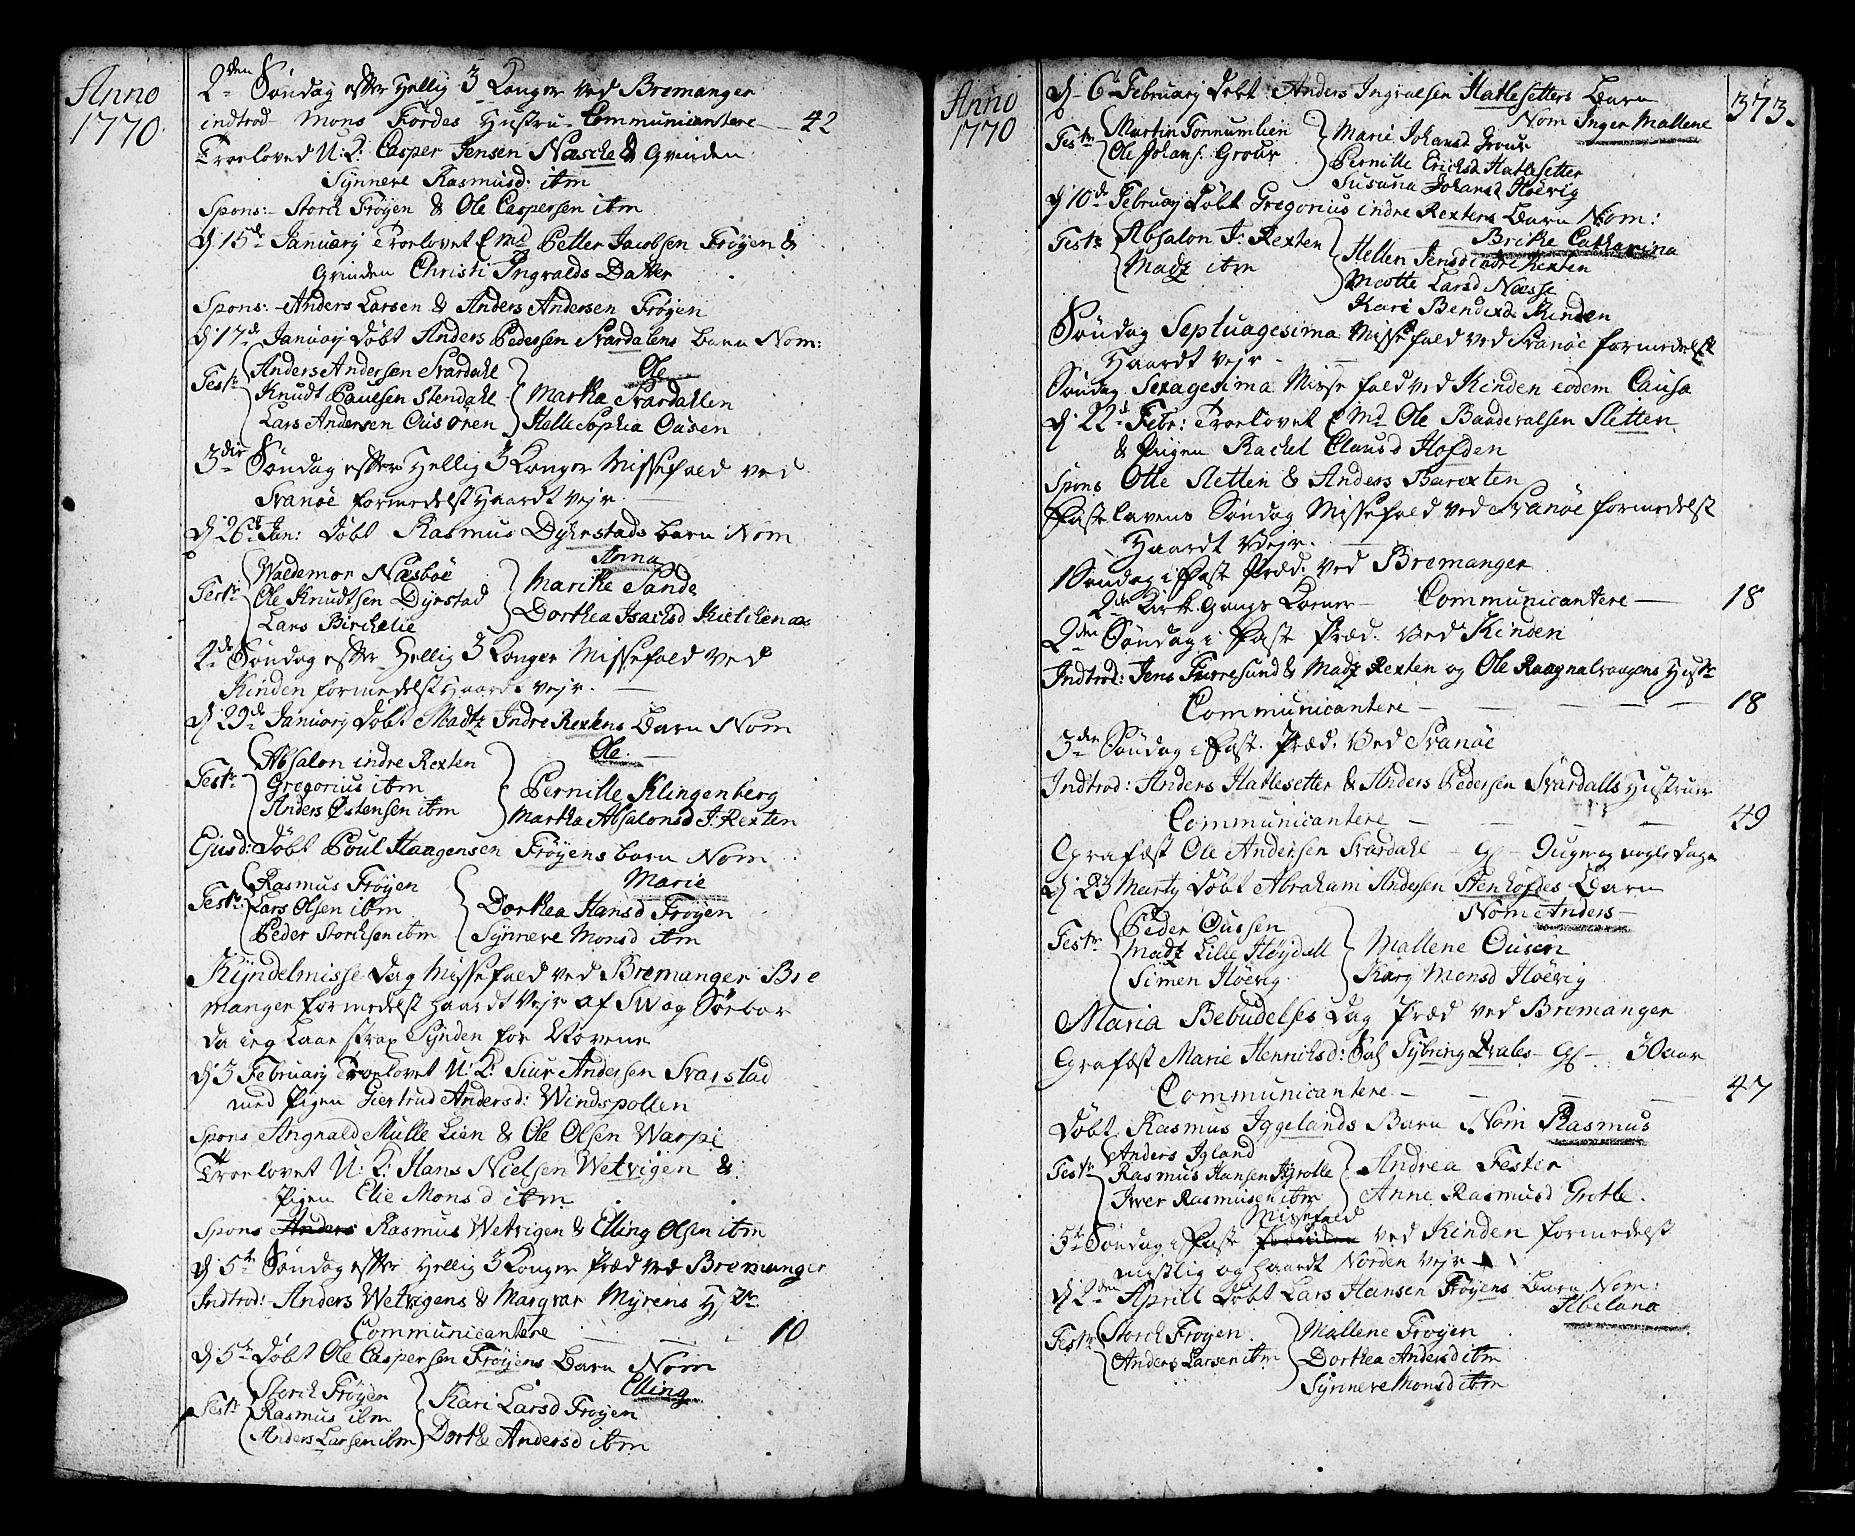 Anno
1770
2den Søndag efter Hellig 3 Konger ved Bremanger
indtrod Mons Fördes Hustru - Communicantere - 42
Troeloved U: K: Casper Jensen Næsche & Qvinden
Synneve Rasmusd: ibm
Spons: - Storch Frøyen & Ole Caspersen ibm
d 15de January Troelovet E Md Petter Jacobsen Frøyen &
Qvinden Christi Ingvalds Datter
Spons: - Anders Larsen & Anders Andersen Frøyen
d 17de January Døbt Anders Pedersen Svardalens barn Nom:
Ole
Test: Anders Andersen Svardahl
Knudt Paulsen Stendahl
Lars Andersen Ousøren
Martha Svardallen
Helle Sophia Ousen
3die Søndag efter Hellig 3 Konger Missefald ved
Svanöe formedelst Haardt Vejr
d 26de Jan: Døbt Rasmus Dyrstads barn Nom
Anna
Test: Waldemor Næsbøe
Ole Knudtsen Dyrstad
Lars Birchelie
Marithe Sande
Dorthea Isachsd
4de Søndag efter Hellig 3 Konger Missefald ved
Kinden formedelst Haardt Vejr.
d 29de January Døbt Madtz Indre Rextens Barn Nom
Ole
Test: Absalon indre Rexten
Gregorius ibm
Anders Østensen ibm
Pernille Klingenberg
Martha Absalonsd J: Rexten
Ejusd: Døbt Poul Haagensen Frøyens barn Nom
Marie
Test: Rasmus Frøyen
Lars Olsen ibm
Peder Storchsen ibm
Dorthea Hansd Frøyen
Synneve Monsd ibm
Kyndelmisse Dag Missefald ved Bremanger Bre
manger formedelst haardt Vejr af
da ieg Laae strax Synden for
d 3 February Troelovet U: K: Siur Andersen Svarstad
med Pigen Giertrud Andersd: Windspollen
Spons Angnald Mulle Lien & Ole Olsen Warpe
Troelovet U: K: Hans Nielsen Wetvigen &
Pigen Elie Monsd ibm
Spons Anders Rasmus Wetvigen & Elling Olsen ibm
d 5te Søndag efter Hellig 3 Konger Præd ved Bremanger
Indtrod: Anders Wetvigens & Margvar Myrens
Communicantere - 10
d 5te Døbt Ole Caspersen Frøyens Barn Nom
Elling
Test: Storch Frøyen
Rasmus ibm
Anders Larsen ibm
Kari Larsd Frøyen
Dorthe Andersd ibm
Anno
1770
373.
d 6te February Døbt Anders Ingvalsen Hatlesetters Barn
Nom Inger Mallene
Test: Martin Tonnumlien
Ole Johans: Grour
Marie Johansd Grour
Pernille Erichsd Hatlesetter
Susana Johansd Høevig
d 10de February Døbt Gregorius indre Rextens Barn Nom:
Brithe Catharina
Test: Absalon J: Rexten
Madz ibm
Hellen Jensd indre Rexten
Mætte Larsd Næsse
Kari Bendixd Kinden
Søndag Septuagesima Missefald ved Svanöe formedelst
Haardt Vejr
Søndag Sexagesima Missefald ved Kinden eodem Causa
d 22de Febr: Troelovet E Md Ole Baardevalsen Sletten
& Pigen Rachel Clausd Hofden
Spons Otte Sletten & Anders Barexten
Fastelavens Søndag Missefald ved Svanöe formedelst
Haardt Vejr.
1 Søndag i Fast Præd. ved Bremanger
2de Kirkgangs Koner - Communicantere - 18
2den Søndag i Fast Præd. Ved Kinden
Indtrod: Jens Furresund & Madz Rexten og Ole Raagnalvaagens
Communicantere - 18
3die Søndag i Fast. Præd. Ved Svanöe
Indtrod: Anders Hatlesetter & Anders Pedersen Svardalls Hustruer
Communicantere - 49
Grafæst Ole Andersen Svardahl - Gl - 9 uger og nogle dage
d 23 Marty Døbt Abraham Andersen Stenhofdes Barn
Nom Anders
Test: Peder Oussen
Madz Lille Høydall
Simen Høevig
Mallene Ousen
Kary Monsd Høevig
Maria Bebudelses Dag Præd ved Bremanger
Grafæst Marie Henrichsd: Sal Tybring - Gl - 30 aar
Communicantere - 47
Døbt Rasmus Iggelands Barn Nom Rasmus
Test: Anders Igland
Rasmus Hansen
Iwer Rasmusen ibm
Andrea Fester
Anne Rasmusd Grotle.
Missefald
5te Søndag i Fast ved Kinden formedelst
og haardt Norden Vejr
d 2den Aprill Døbt Lars Hansen Frøyens Barn Nom:
Abelona
Test: Storch Frøyen
Anders Larsen ibm
Mallene Frøyen
Dorthea Andersd ibm
Synneve Monsd ibm